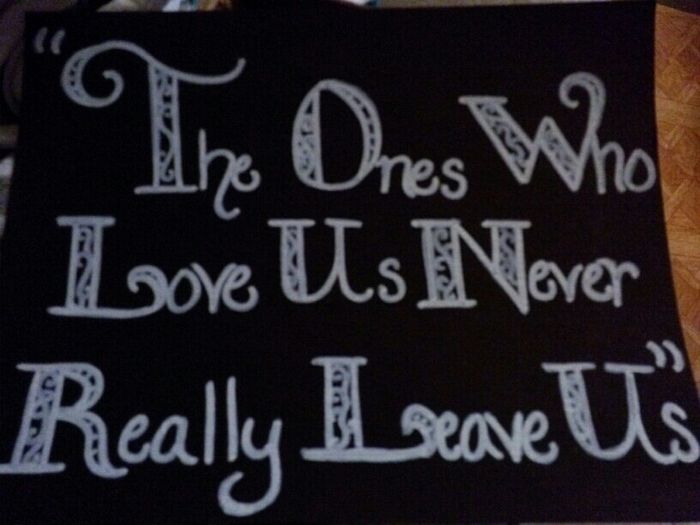 “The Ones Who
Love Us Never
Really Leave Us”